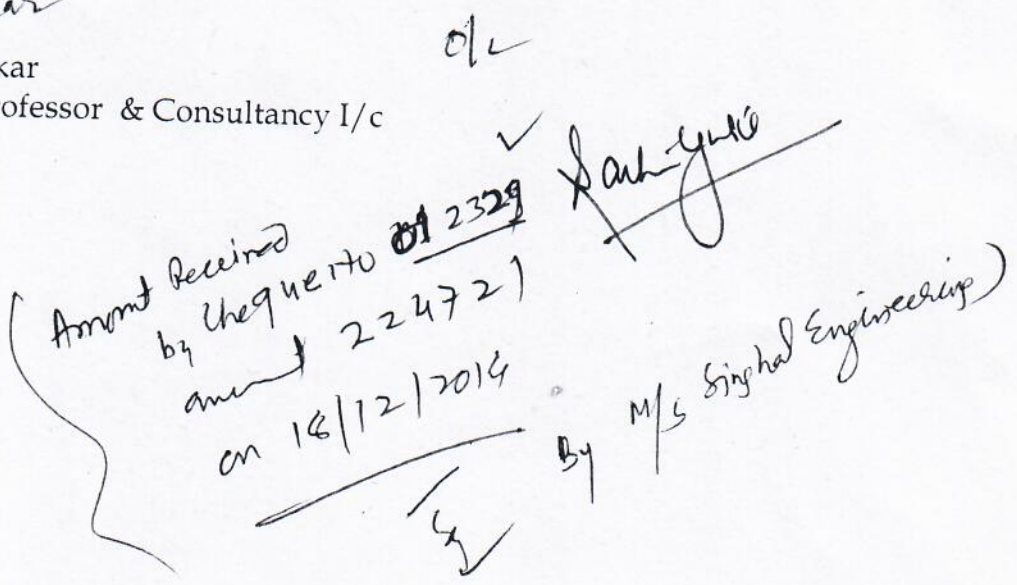 kar
ofessor & Consultancy I/c
O/c
Amount Received
by Cheque No 2329
amount 224721
on 18/12/2014
By M/s Singhal Engineering)